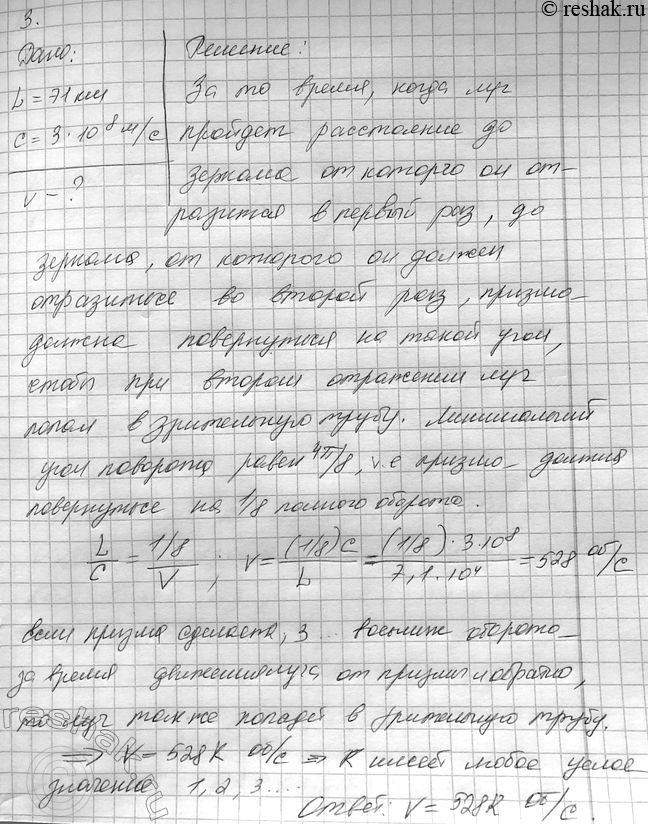 © reshak.ru
3.
Дано: Решение:
L = 71 км За то время, когда луч
c = 3·10⁸ м/с пройдет расстояние до
v - ? зеркала от которго он от-
разится в первый раз, до
зеркала, от которого он должен
отразиться во второй раз, призма
должна повернуться на такой угол,
чтобы при втором отражении луч
попал в зрительную трубу. Минимальный
угол поворота равен 4π/8, т.е призма должна
повернуться на 1/8 полного оборота.
L/C = (1/8)/V ; V = (1/8)c/L = (1/8)·3·10⁸/7,1·10⁴ = 528 об/с
если призма сделает, 3... восьмых оборота
за время движения луча от призмы и обратно,
то луч также попадет в зрительную трубу.
=> V = 528k об/с => k имеет любое целое
значение 1, 2, 3....
Ответ: V = 528k об/с.
reshak.ru